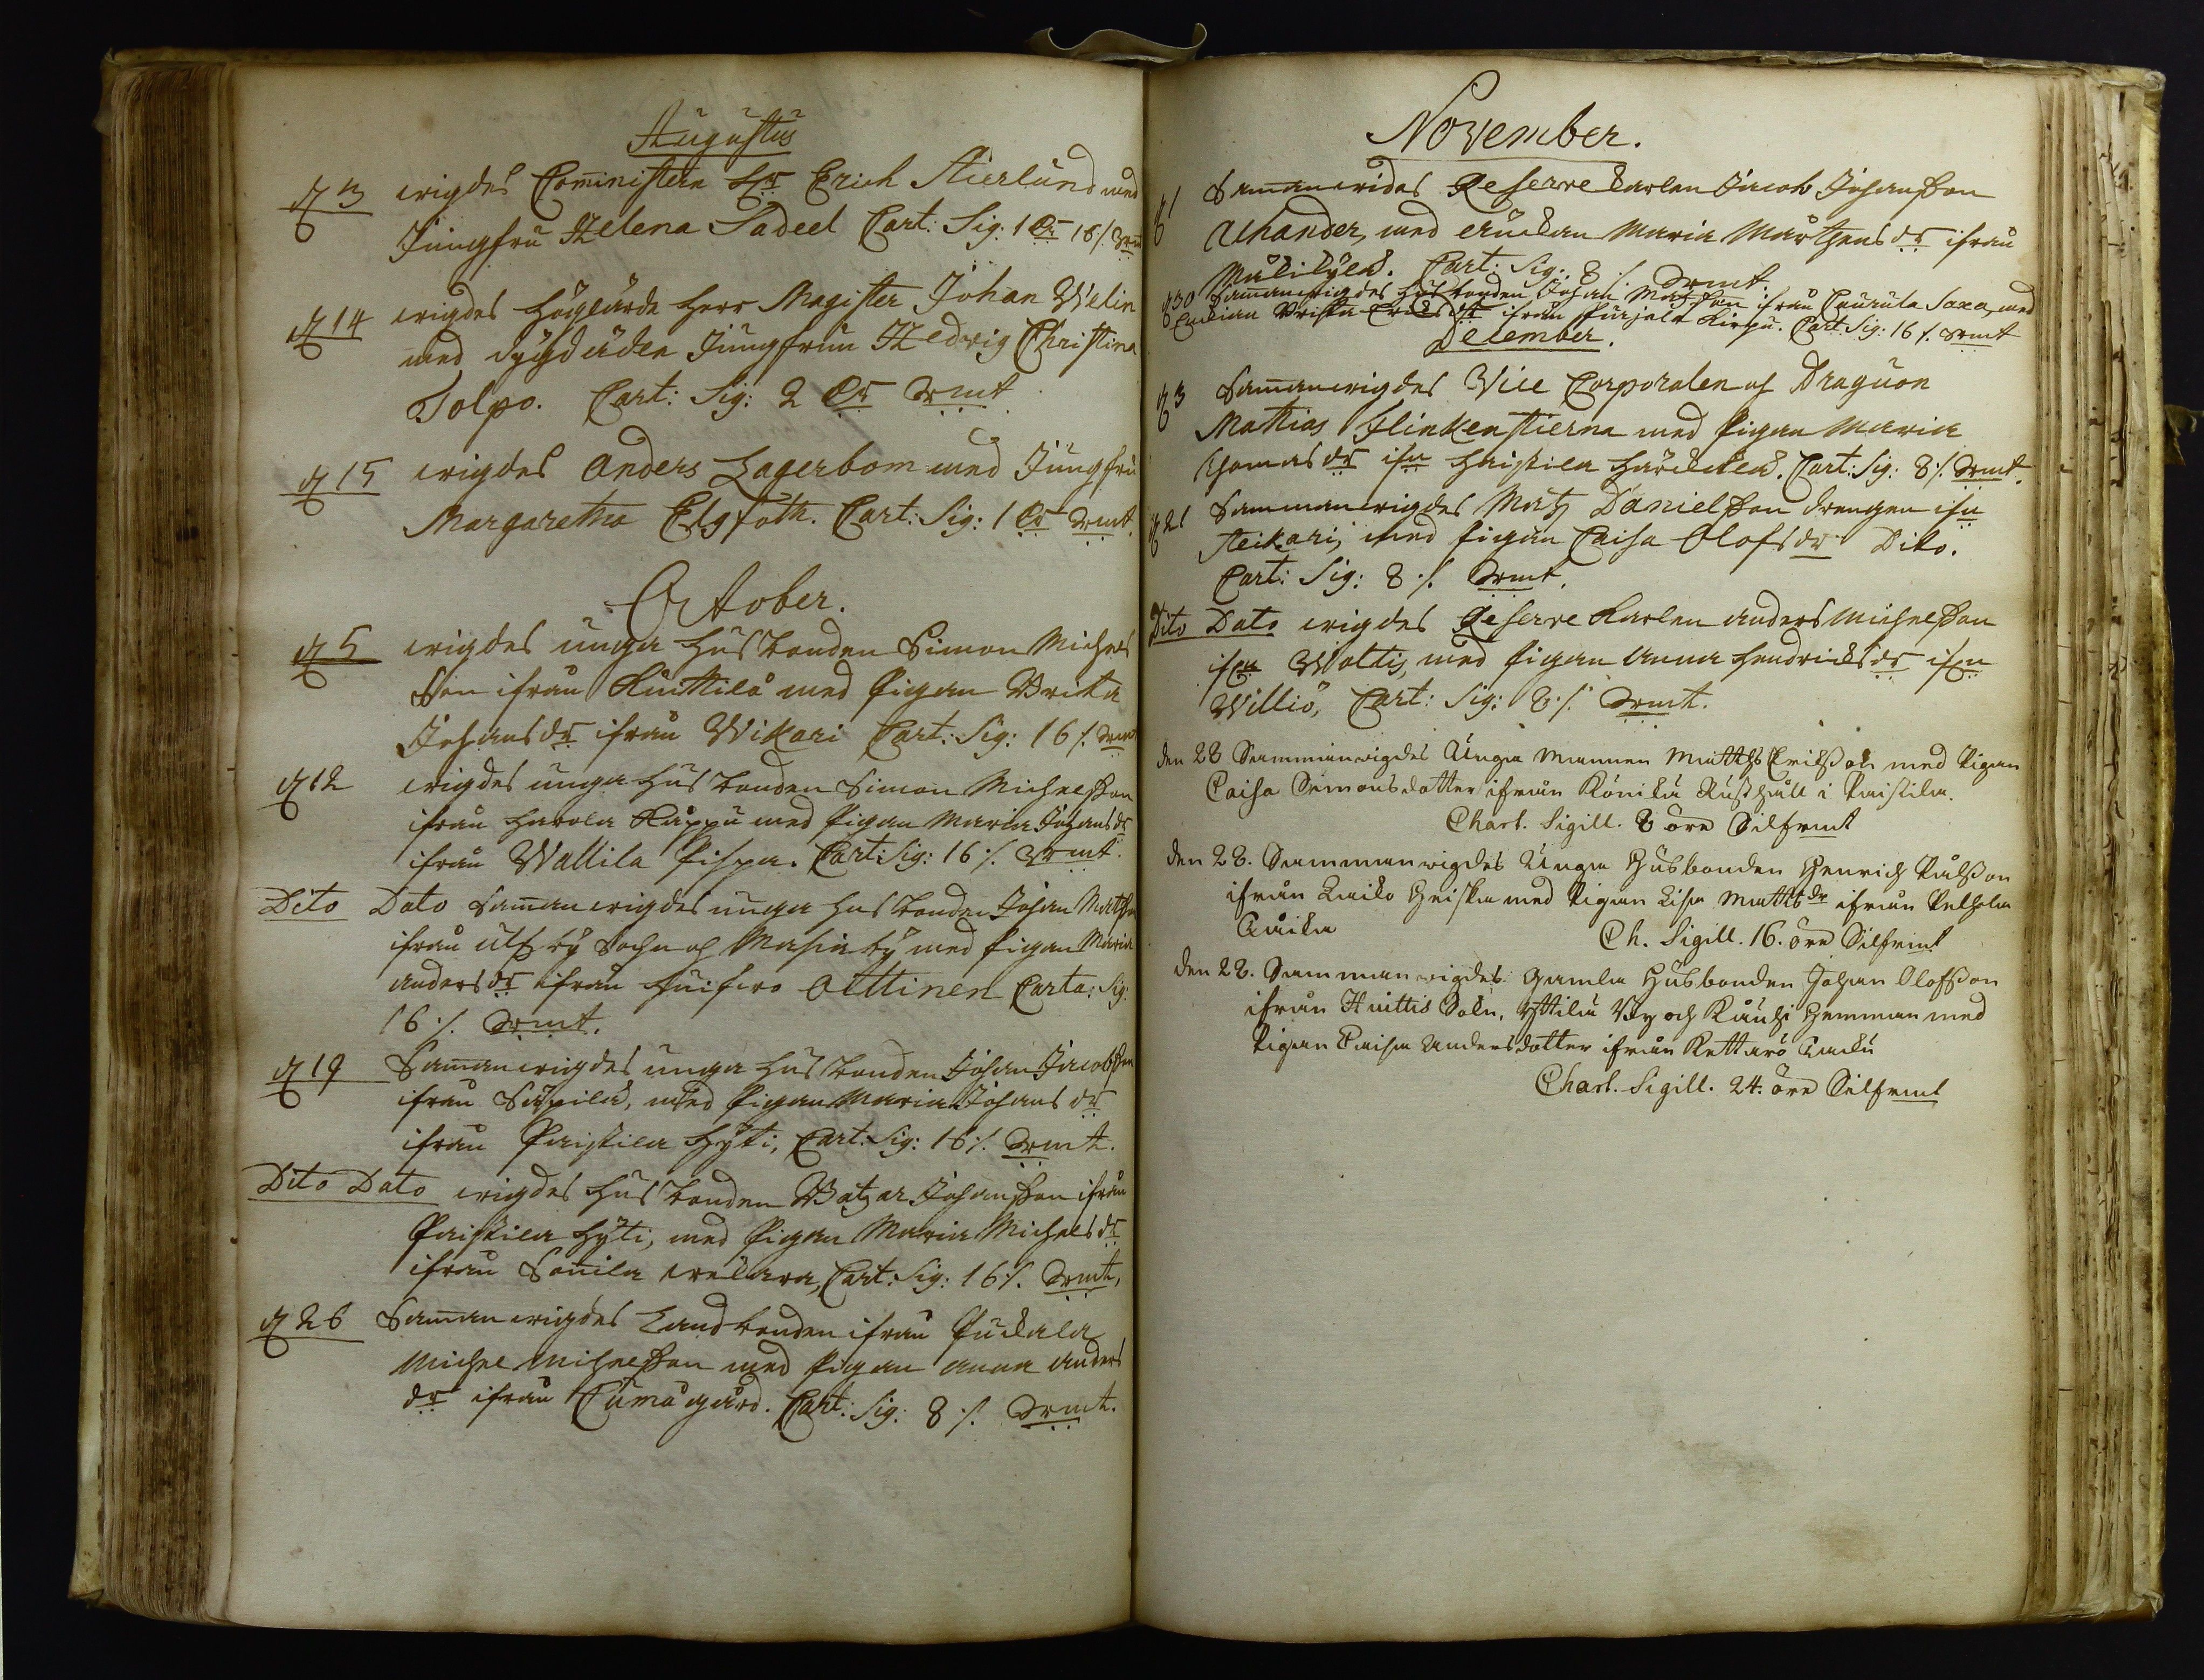 Augustus
d 3 wigdes Comministern Hr Erich Stierlund med
Jungfru Helena Sadeel Cart: Sig: 1 Dr 16 /. Srmt
d 14 wigdes Höglärde Herr Magister Johan Welin
med dygdädla Jungfrun Hedvig Christina
Polpo. Cart: Sig: 2 Dr Srmt
d 15 wigdes Anders Lagerbom med Jungfru
Margaretha Elgfoth. Cart: Sig: 1 Dr Srmt.
October.
d 5 wigdes unga Husbonden Simon Michels
Son ifrån Kuittilå med Pigan Brita
Johansdr ifrån Wikari Cart: Sig: 16 /. Srmt
d 12 wigdes unga Husbonden Simon Michelsson
ifrån Harola Kåppu med Pigan Maria Johansdr
ifrån Wallila Pispa. Cart: Sig: 16 /. Srmt.
Dito Dato Sam̄anwigdes unga Husbonden Johan Matsson
ifrån Ulfsby Sochn och Masia by med Pigan Maria
Andersdr ifrån Oettinen Carta: Sig:
16 /. Srmt.
d 19 Sam̄anwigdes unga Husbonden Johan Jacobsson
ifrån Säpilä, med Pigan Maria Johansdr
ifrån Paistila Hyti, Cart: Sig: 16 /. Srmt.
Dito Dato wigdes Husbonden Batzar Johansson ifrån
Paistila Hyti, med Pigan Maria Michelsdr
ifrån Son̄ila Cart: Sig: 16 /. Srmt,
d 26 Sam̄anwigdes Landbonden ifrån Puckala
Michel Michelsson med Pigan Anna Anders
dr ifrån Cumå gård. Cart: Sig: 8 /. Srmt.
November.
d 1 Sam̄anwides Reserve Karlen Jacob Johansson
Alhander, med Enckan Maria Mårthensdr ifrån
Cart: Sig: 8 /. Srmt.
d 30 Sam̄anwigdes Husbonden Johan Matsson ifrån Caurula Saxa, med
Enckian Brita Ericsdr ifrån Purjala Kirpu. Cart: Sig: 16 /. Srmt
December.
d 3 Sam̄anwigdes Vice Corporalen af Dragoun
Mathias Flinkenstierna med Pigan Maria
Thomasdr ifn Haistila Cart: Sig: 8 /. Srmt.
d 21 Sammanwigdes Matz Danielsson drengen ifn
Steikari, med Pigan Caisa Olofsdr Dito.
Cart: Sig: 8 /. Srmt.
Dito Dato wigdes Reserve Karlen Anders Michelsson
ifrn Woltis, med Pigan Anna Hendricksdr ifrn
Williö, Cart: Sig: 8 /. Srmt.
den 28 Sammanwigdes Unga Mannen Matths Erikßon med Pigan
Caisa Simonsdotter ifrån Rönikä Rusthåll i Paistila.
Chart. Sigill. 8 öre Silfrmt
den 28. Sammanwigdes Unga Husbonden Henrich Pålßon
ifrån Laiko Heiska med Pigan Lisa Mattsdr ifrån Pelhola
Ch. Sigill. 16. öre Silfrmt
den 28. Sammanwigdes Gamla Husbonden Johan Olofsson
ifrån Huittis Sokn, Yttilä By och Käuhi Hemman med
Pigan Caisa Andersdotter ifrån Kettarö
Chart. Sigill. 24. öre Silfrmt